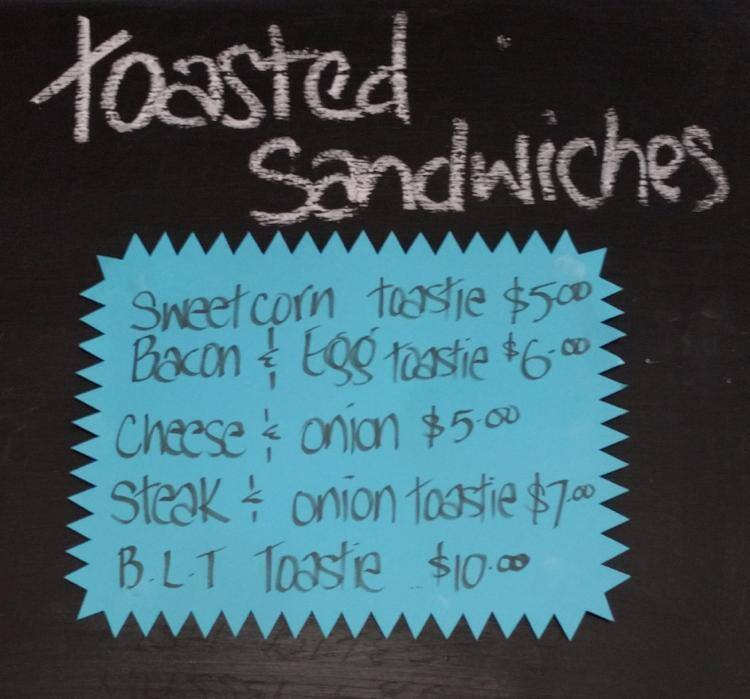 toasted
sandwiches
Sweetcorn toastie $5.00
Bacon & Egg toastie $6.00
Cheese & onion $5.00
Steak & onion toastie $7.00
B.L.T Toastie $10.00